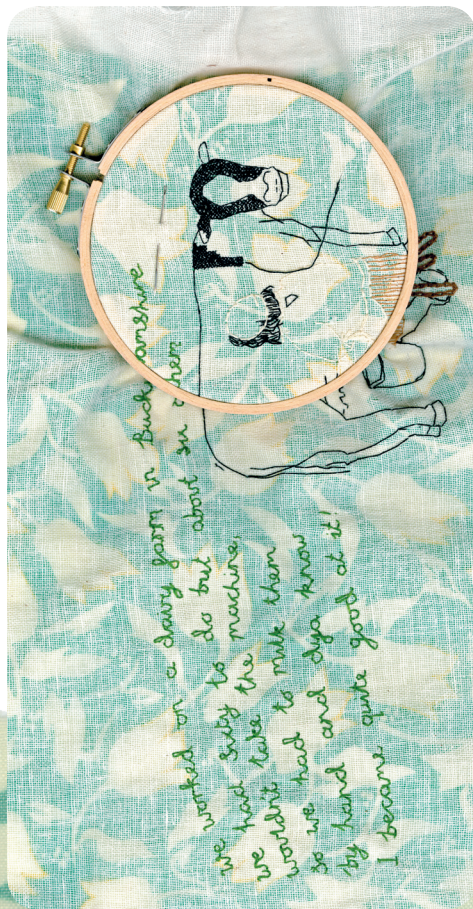 we worked on a dairy farm in Buckinghamshire
we had sixty to do but about six them
wouldn't take the machine,
so we had to milk them
by hand and dya know
I became quite good at it!